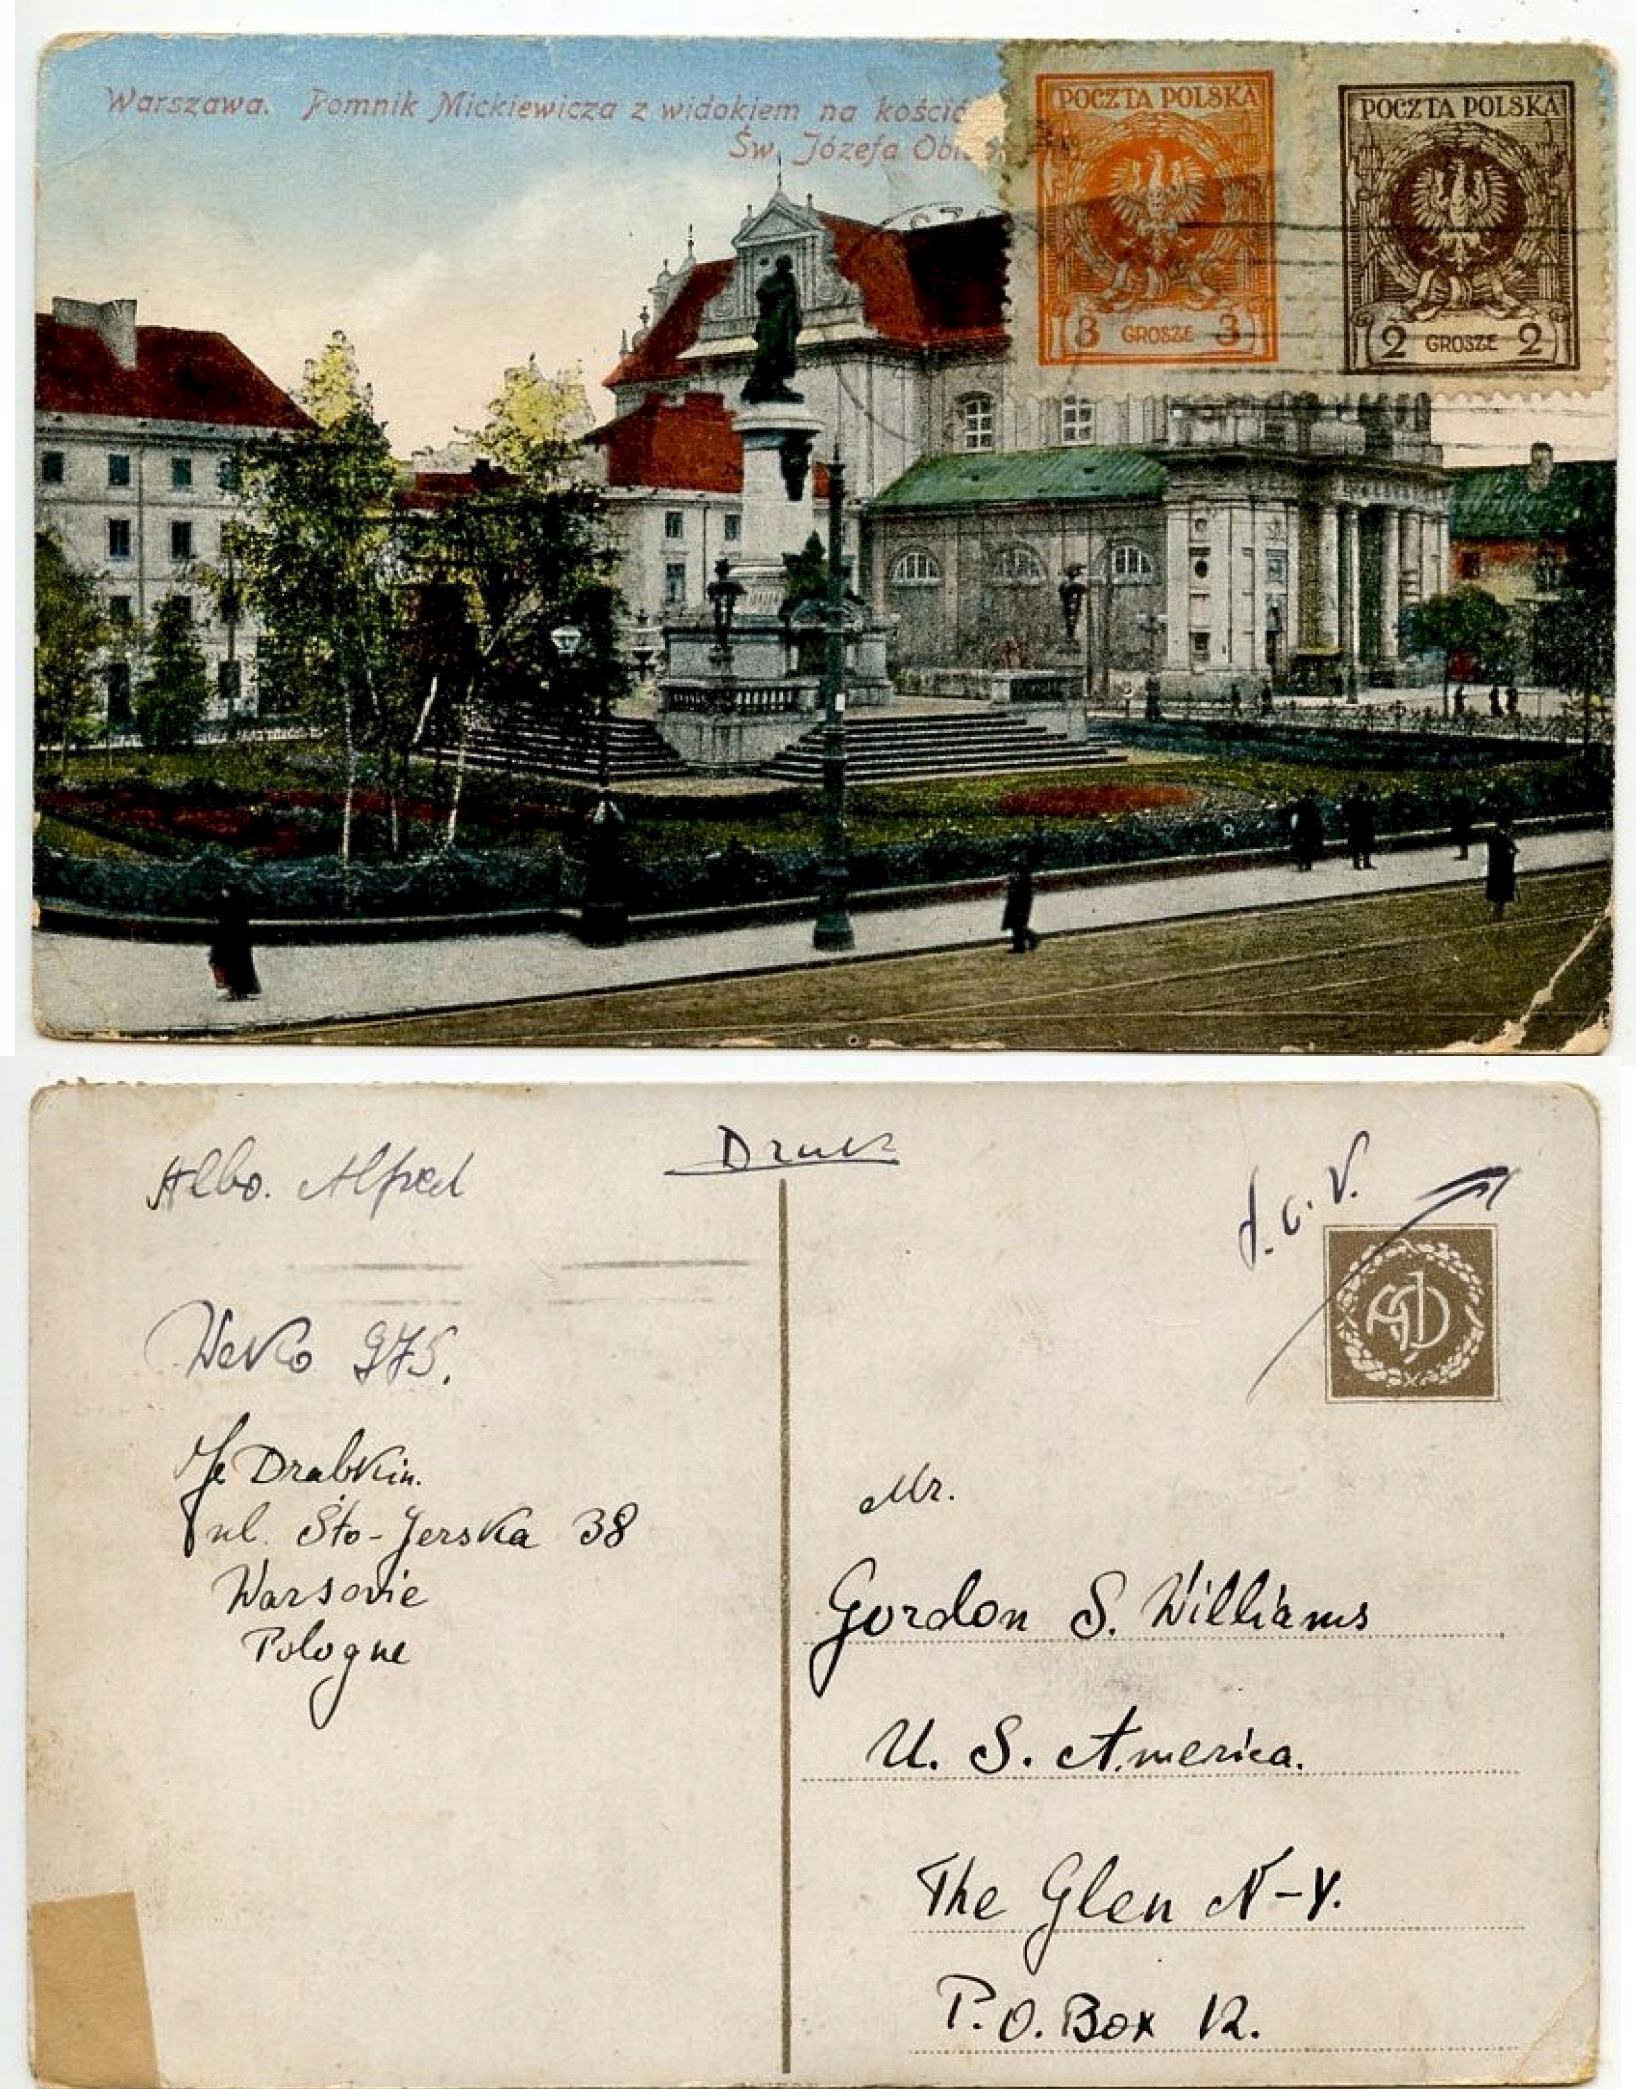 Warszawa. Pomnik Mickiewicza z widokiem na kośció
Św. Józefa Obl
POCZTA POLSKA
3 GROSZE 3
POCZTA POLSKA
2 GROSZE 2
Druk
Albo. Alfred
J. c. V.
Weko 975.
Drabkin.
ul. Sto-Jerska 38
Warsovie
Pologne
Mr.
Gordon S. Williams
U. S. America.
The Glen N-Y.
P.O. Box 12.